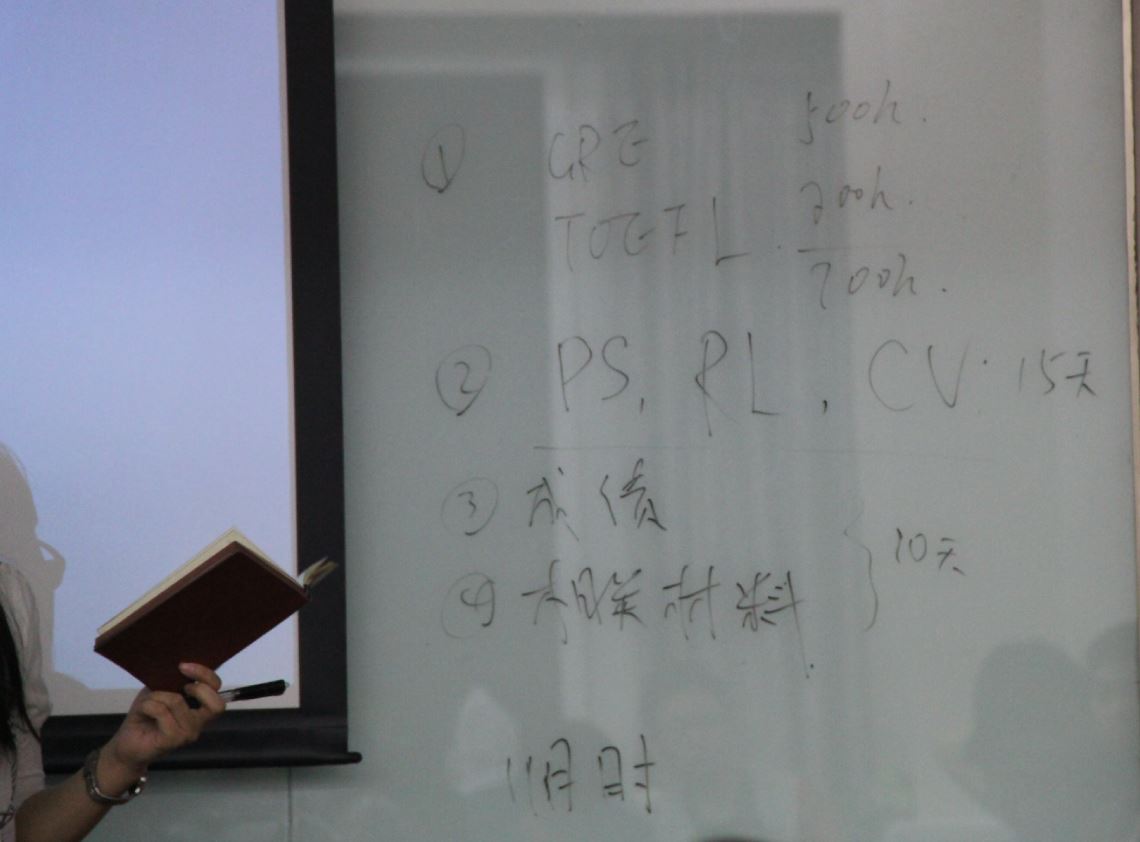 ① GRE 500h.
TOEFL. 200h.
700h.
② PS, RL, CV. 15天
③ 成绩
④ 相关材料
10天
时